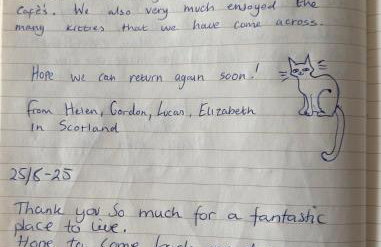 Cafè's. We also very much enjoyed the
many kitties that we have come across.
Hope we can return again soon!
From Helen, Gordon, Lucas, Elizabeth
in Scotland
25/5-25
Thank you so much for a fantastic
place to live.
Hope to come back